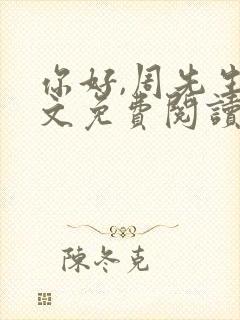 你好,周先生
文免費閱讀
陳冬克